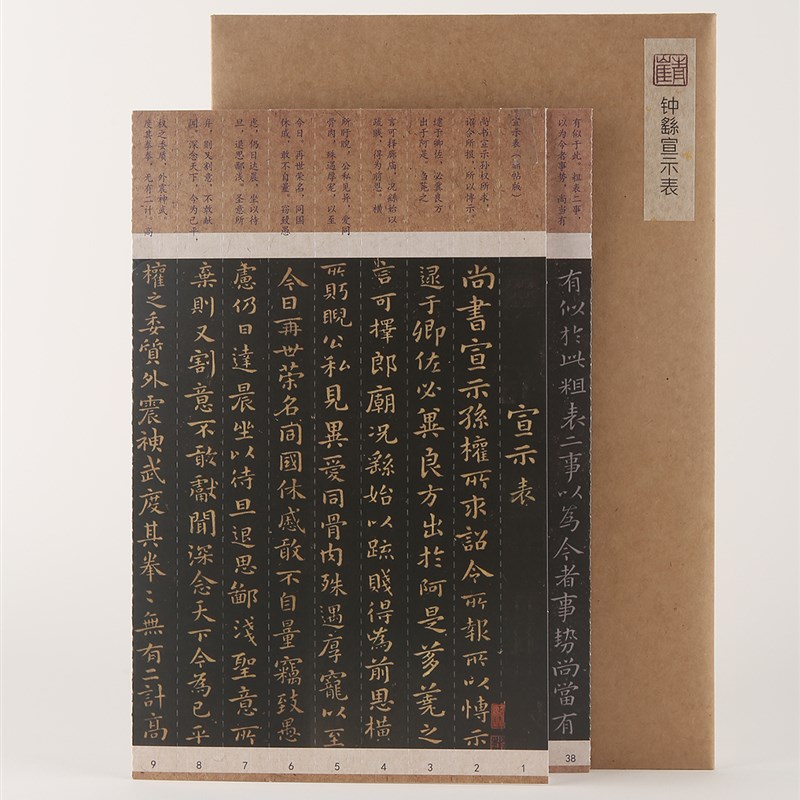 钟繇宣示表
有似于此。粗表二事，
以为今者事势，尚当有
尚书宣示孙权所求，
诏令所报，所以博示，
逮于卿佐，必冀良方
出于阿是。刍荛之
言可择廊庙，况繇始以
疏贱，得为前恩。横
所眄睨，公私见异，爱同
骨肉，殊遇厚宠，以至
今日。再世荣名，同国
休戚，敢不自量。窃致愚
虑，仍日达晨，坐以待
旦，退思鄙浅。圣意所
弃，则又割意，不敢献
闻。深念天下，今为已平，
权之委质，外震神武。
度其拳拳，无有二计。高
有似於此粗表二事以為今者事勢尚當有
宣示表
尚書宣示孫權所求詔令所報所以博示
逮于卿佐必冀良方出於阿是芻蕘之
言可擇郎廟況繇始以疏賤得為前恩橫
所眄睨公私見異愛同骨肉殊遇厚寵以至
今日再世榮名同國休慼敢不自量竊致愚
慮仍日達晨坐以待旦退思鄙淺聖意所
棄則又割意不敢獻聞深念天下今為已平
權之委質外震神武度其拳〻無有二計高
38
1
2
3
4
5
6
7
8
9